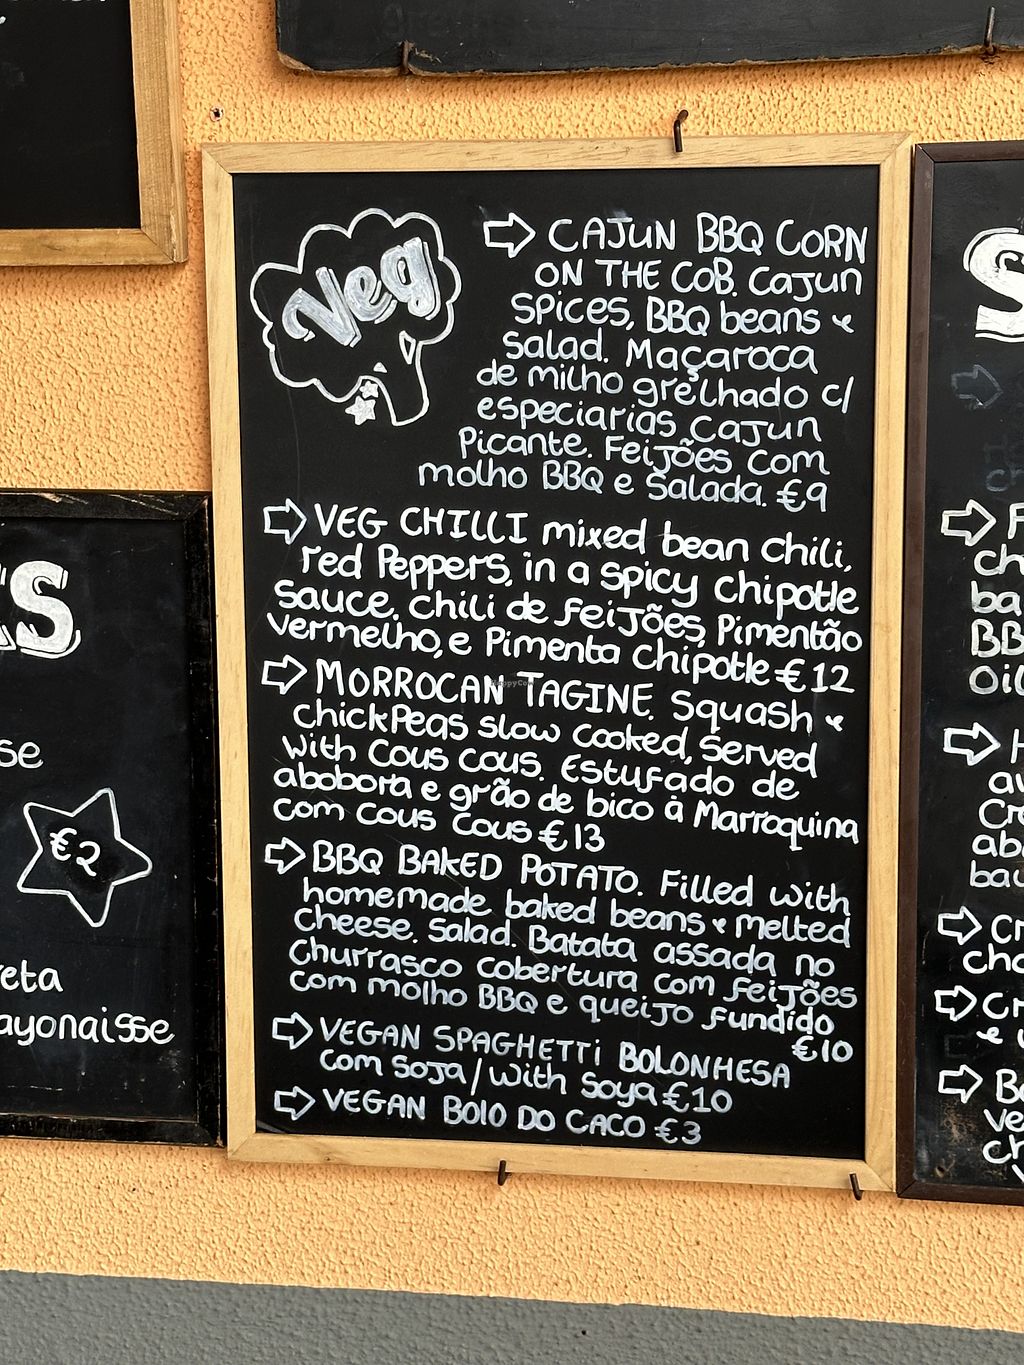 Veg
CAJUN BBQ CORN
ON THE COB. Cajun
Spices, BBQ beans &
Salad. Maçaroca
de milho grelhado c/
especiarias Cajun
Picante. Feijões com
molho BBQ e Salada. €9
VEG CHILLI mixed bean chili,
red Peppers, in a spicy Chipotle
Sauce. Chili de feijões, Pimentão
vermelho, e Pimenta Chipotle €12
MORROCAN TAGINE. Squash &
ChickPeas slow cooked, Served
With Cous cous. Estufado de
abobora e grão de bico à Marroquina
com cous cous €13
BBQ BAKED POTATO. Filled with
homemade baked beans & melted
Cheese. Salad. Batata assada no
Churrasco cobertura com feijões
com molho BBQ e queijo fundido
€10
VEGAN SPAGHETTi BOLONHESA
com Soja / With Soya €10
VEGAN BOlO DO CACO €3
€2
ayonaisse
HappyCow